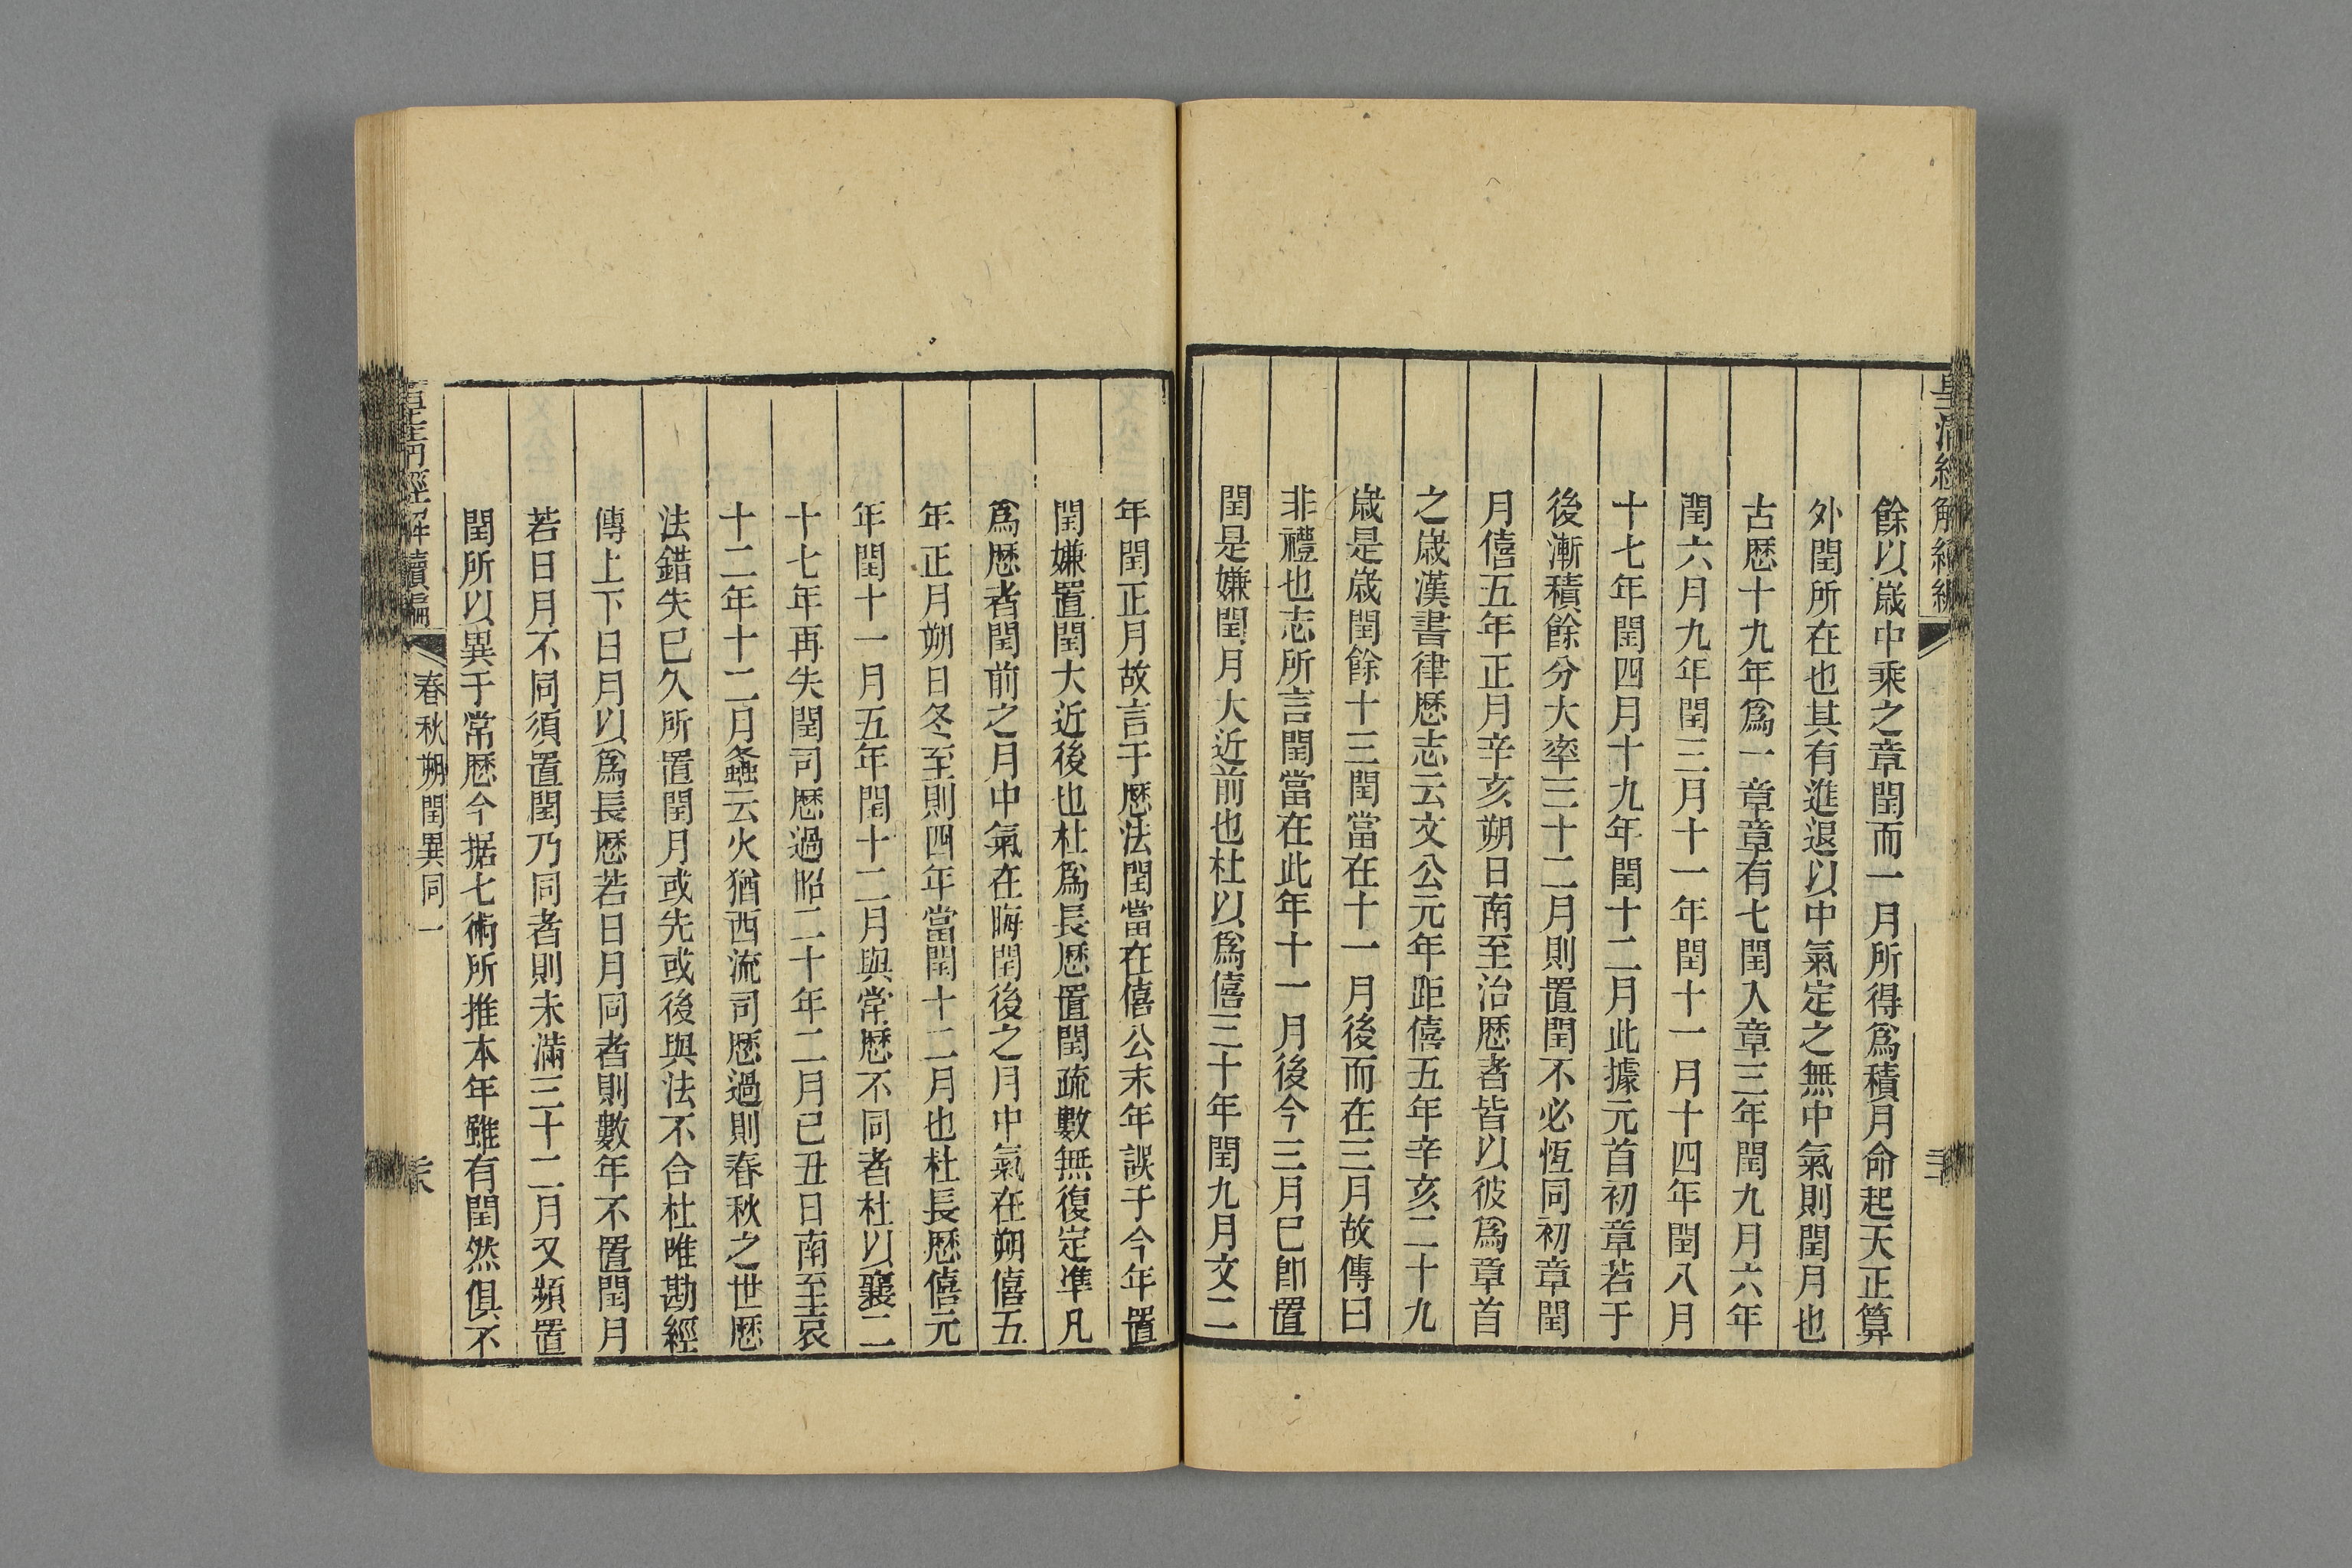 皇清經解續編
餘以歲中乘之章閏而一月所得爲積月命起天正算
外閏所在也其有進退以中氣定之無中氣則閏月也
古厯十九年爲一章章有七閏入章三年閏九月六年
閏六月九年閏三月十一年閏十一月十四年閏八月
十七年閏四月十九年閏十二月此據元首初章若于
後漸積餘分大率三十二月則置閏不必恆同初章閏
月僖五年正月辛亥朔日南至治厯者皆以彼爲章首
之歲漢書律厯志云文公元年距僖五年辛亥二十九
歲是歲閏餘十三閏當在十一月後而在三月故傳曰
非禮也志所言閏當在此年十一月後今三月巳卽置
閏是嫌閏月大近前也杜以爲僖三十年閏九月文二
年閏正月故言于厯法閏當在僖公末年誤于今年置
閏嫌置閏大近後也杜爲長厯置閏疏數無復定凖凡
爲厯者閏前之月中氣在晦閏後之月中氣在朔僖五
年正月朔日冬至則四年當閏十二月也杜長厯僖元
年閏十一月五年閏十二月與常厯不同者杜以襄二
十七年再失閏司厯過昭二十年二月巳丑日南至哀
十二年十二月螽云火猶西流司厯過則春秋之世厯
法錯失巳久所置閏月或先或後與法不合杜唯勘經
傳上下日月以爲長厯若日月同者則數年不置閏月
若日月不同須置閏乃同者則未滿三十二月又頻置
閏所以異于常厯今据七術所推本年雖有閏然俱不
經解續編
春秋朔閏異同一